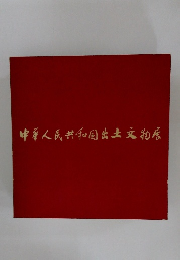 中华人民共和国出土文物展